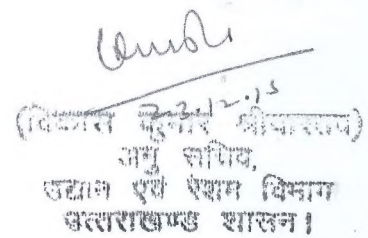 23.12.15
(विकास कुमार श्रीवास्तव)
अनु सचिव,
उद्यान एवं रेशम विभाग
उत्तराखण्ड शासन।